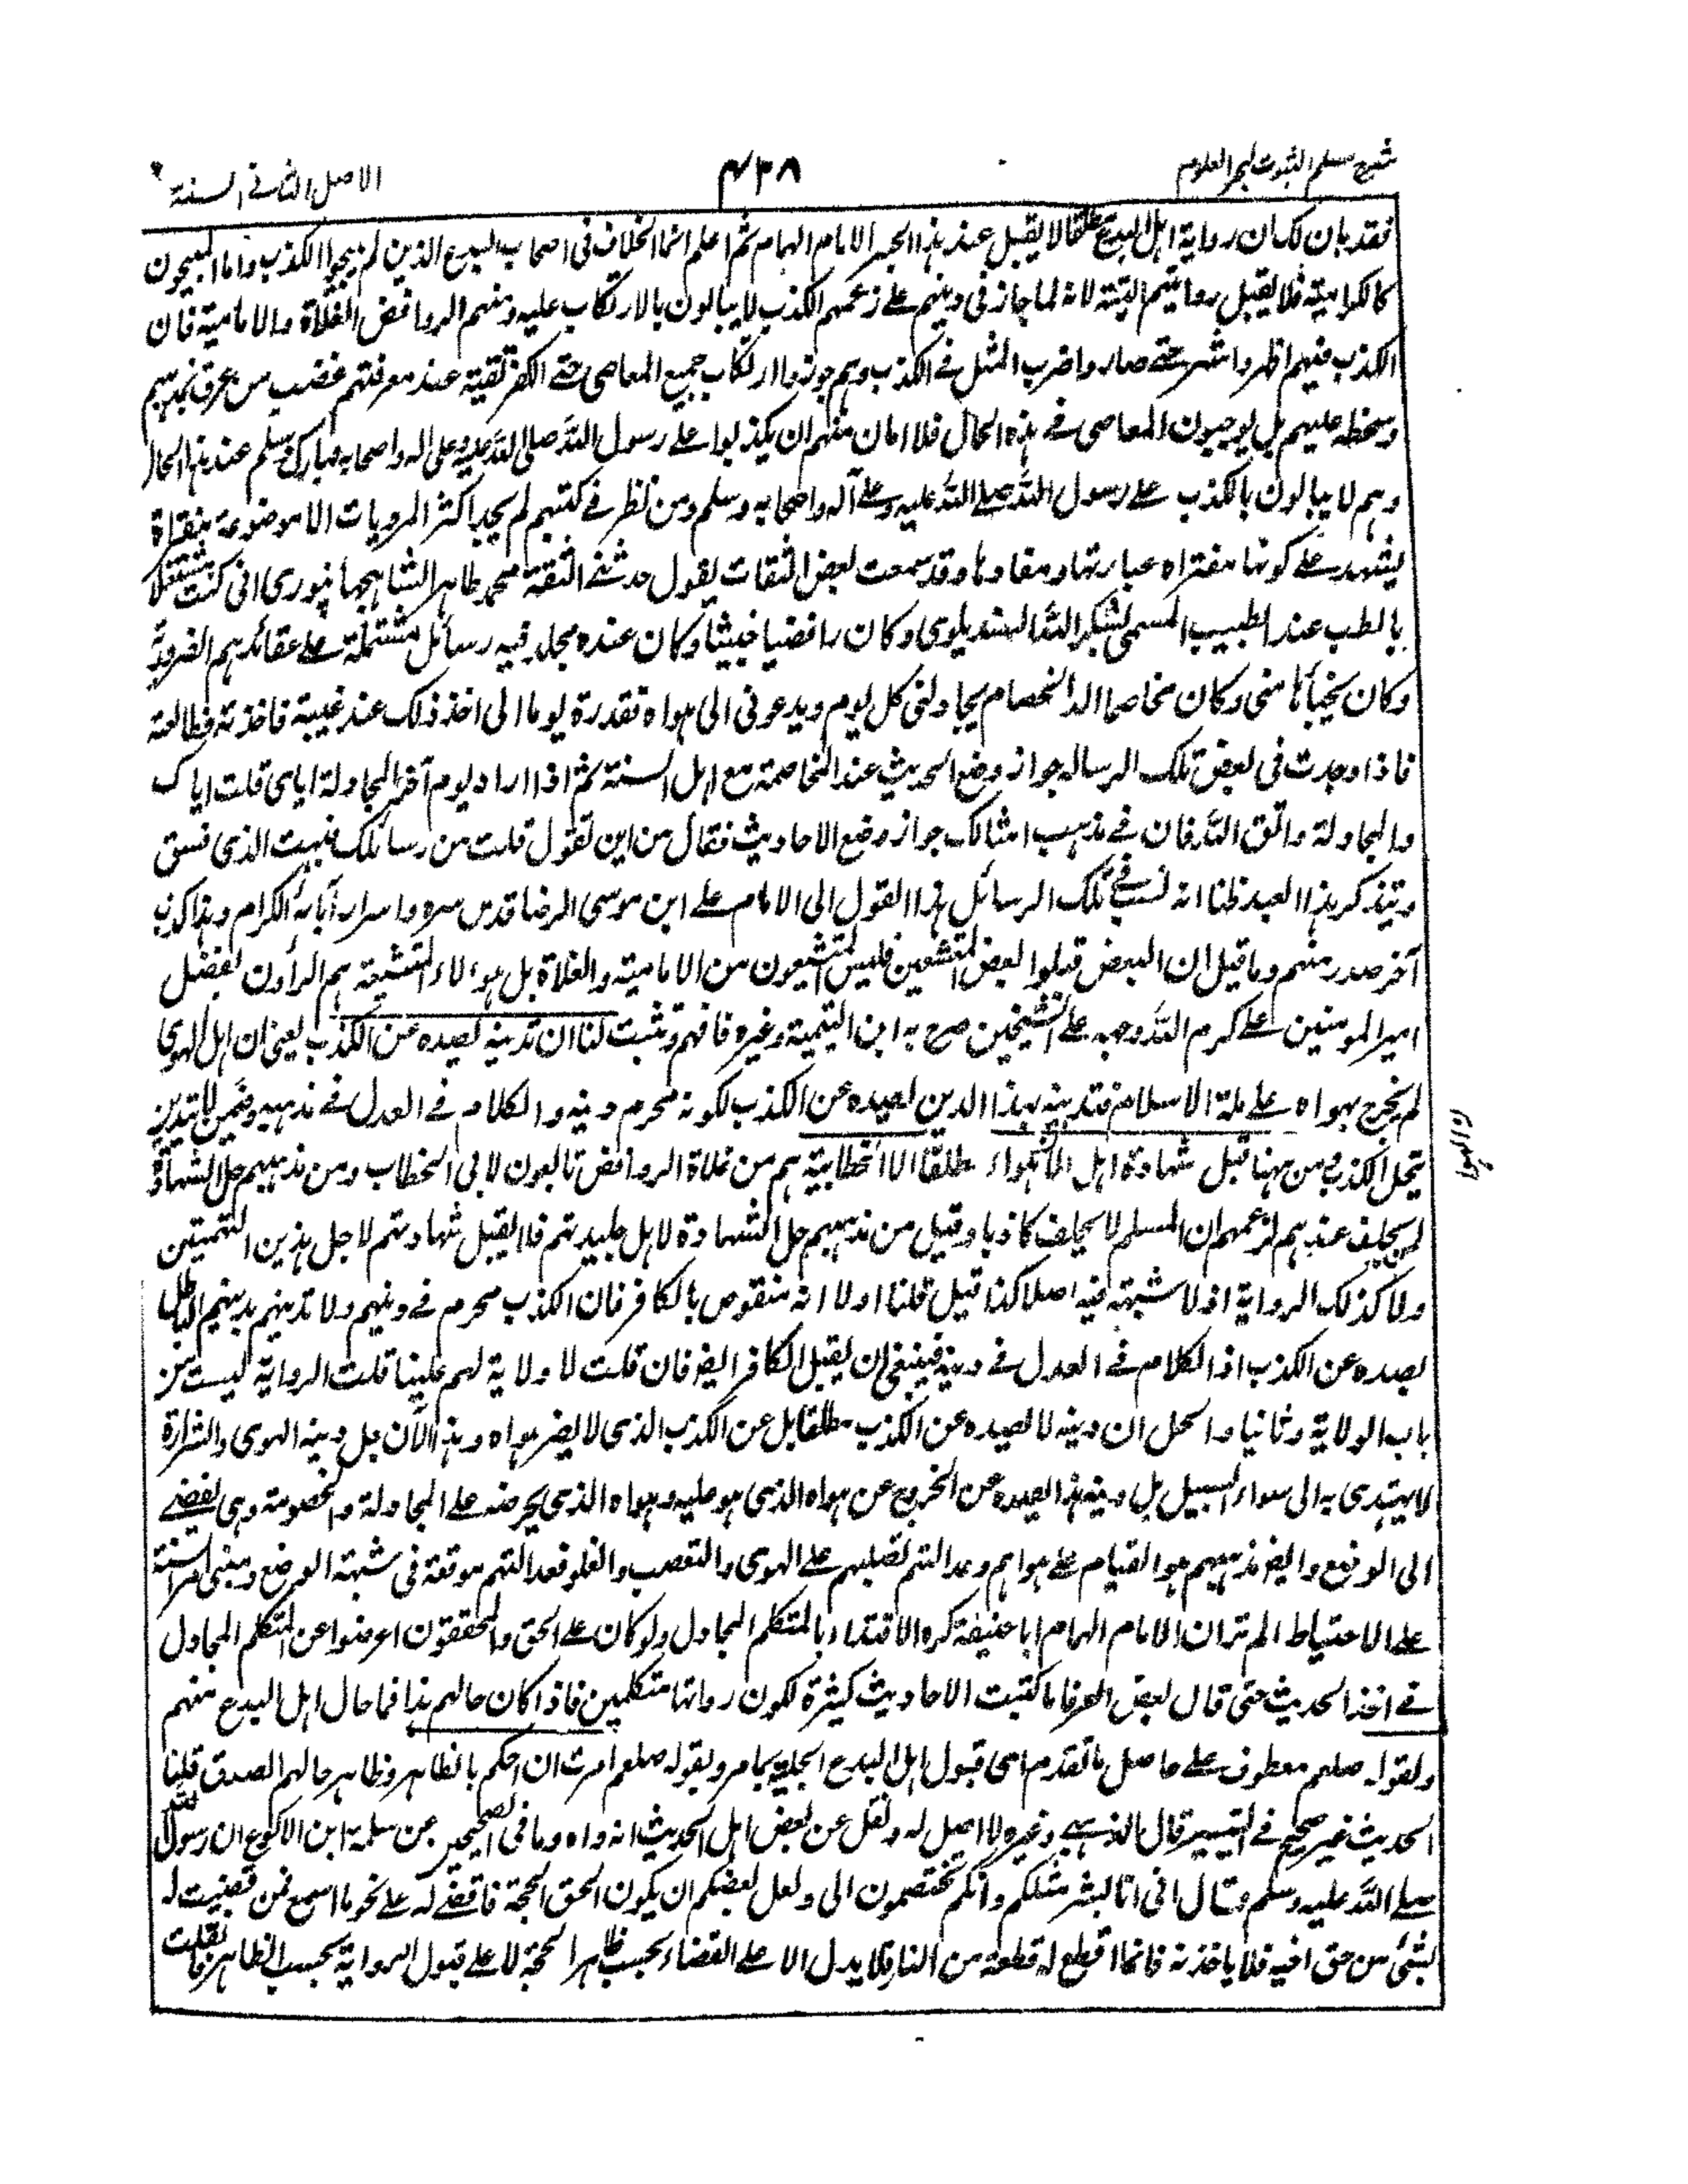 شرح مسلم الثبوت لبحر العلوم
٤٣٨
الاصل الثانی فی السنة
فقد بان لک ان روایة اهل البدع مطلقا لا یقبل عند هذا الحبر الامام الهمام ثم اعلم انما الخلاف فی اصحاب البدع الذین لم یبیحوا الکذب واما المبیحون
کالکرامیة فلا یقبل روایتهم البتة لانه لما جاز فی دینهم علی زعمهم الکذب لا یبالون بالارتکاب علیه ومنهم الروافض الغلاة والامامیة فان
الکذب فیهم اظهر واشهر حتی صاروا ضرب المثل فی الکذب وهم جوزوا ارتکاب جمیع المعاصی حتی الکفر تقیة عند معرفتهم غضب من عرف بمذهبهم
وسخطه علیهم بل یوجبون المعاصی فی هذه الحال فلا امان منهم ان یکذبوا علی رسول الله صلی الله علیه وعلی اله واصحابه وبارک وسلم عند هذا الحال
وهم لا یبالون بالکذب علی رسول الله صلی الله علیه وعلی آله واصحابه وسلم ومن نظر فی کتبهم لم یجد اکثر المرویات الا موضوعة مفتراة
یشهد علی کونها مفتراه عبارتها ومفادها وقد سمعت بعض الثقات یقول حدثنی الثقة محمد طاهر الشاهجهانپوری انی کنت مشتغلا
بالطب عند الطبیب المسمی بشکر الله السندیلوی وکان رافضیا خبیثا وکان عنده مجلد فیه رسائل مشتملة علی عقائدهم الضروریة
وکان یخبأها منی وکان مخاصما الد الخصام یجادلنی کل یوم ویدعونی الی هواه فقدرت یوما الی اخذ ذلک عند غیبته فاخذته فطالعته
فاذا وجدت فی بعض تلک الرساله جواز وضع الحدیث عند المخاصمة مع اهل السنة ثم اذا اراد یوم آخر المجادلة ایای قلت ایاک
والمجادلة واتق الله فان فی مذهب امثالک جواز وضع الاحادیث فقال من این تقول قلت من رسائلک فبهت الذی فسق
ویتذکر هذا العبد ظنا انه نسب فی تلک الرسائل هذا القول الی الامام علی ابن موسی الرضا قدس سره واسرار آبائه الکرام وهذا کذب
آخر صدر منهم وما قیل ان البعض قبلوا بعض المتشیعین فلیس المتشیعون من الامامیة والغلاة بل هؤلاء المتشیعة هم الراؤن بفضل
امیر المومنین علی کرم الله وجهه علی الشیخین صرح به ابن التیمیة وغیره فافهم وتثبت لنا ان تدینه یصده عن الکذب یعنی ان اهل الهوی
لم یخرج بهواه علی ملة الاسلام فتدینه بهذا الدین یصده عن الکذب لکونه محرم دینه والکلام فی العدل فی مذهبه وفمن لا یتدین
یحل الکذب ومن ههنا قبل شهادة اهل الاهواء مطلقا الا الخطابیة هم من غلاة الروافض تابعون لابی الخطاب ومن مذهبهم حل الشهادة
لمن یحلف عندهم لزعمهم ان المسلم لا یحلف کاذبا وقیل من مذهبهم حل الشهادة لاهل جلدتهم فلا یقبل شهادتهم لاجل هذین التهمتین
ولا کذلک الروایة اذ لا شبهة فیه اصلا کذا قیل قلنا اولا انه منقوض بالکافر فان الکذب محرم فی دینهم ولا تدینهم بدینهم الباطل
یصده عن الکذب اذ الکلام فی العدل فی دینه فینبغی ان یقبل الکافر ایضا فان قلت لا ولایة لهم علینا قلت الروایة لیست من
باب الولایة وثانیا والحل ان دینه لا یصده عن الکذب مطلقا بل عن الکذب الذی لا یضر هواه وهذا لان جل دینه الهوی والشرارة
لا یهتدی به الی سواء السبیل بل دینه هذا یصده عن الخروج عن هواه الذی هو علیه وهواه الذی یحرضه علی المجادلة والخصومة وهی یفضی
الی الوقوع وایضا مذهبهم هو القیام علی هواهم وعدالتهم تصلبهم علی الهوی والتعصب والغلو فعدالتهم موقعة فی شبهة الوضع ومبنی امر السنة
علی الاحتیاط الم تر ان الامام الهمام ابا حنیفة کره الاقتداء بالمتکلم المجادل ولو کان علی الحق والمحققون اعرضوا عن المتکلم المجادل
فی اخذ الحدیث حتی قال بعض العرفا ما کتبت الاحادیث کثیرة لکون رواتها متکلمین فاذا کان حالهم هذا فما حال اهل البدع منهم
ولقوله صلعم معطوف علی حاصل ما تقدم ای قبول اهل البدع الجلیة بما مر وبقوله صلعم امرت ان احکم بالظاهر وظاهر حالهم الصدق قلنا
الحدیث غیر صحیح فی التیسیر قال الذهبی وغیره لا اصل له ونقل عن بعض اهل الحدیث انه واه وما فی الصحیحین عن سلمة ابن الاکوع ان رسول الله
صلی الله علیه وسلم وقال انی انا بشر مثلکم وانکم تختصمون الی ولعل بعضکم ان یکون الحق بالحجة فاقضی له علی نحو ما اسمع فمن قضیت له
بشئ من حق اخیه فلا یاخذنه فانما اقطع له قطعة من النار فلا یدل الا علی القضاء بحسب ظاهر الحجة لا علی قبول الروایة بحسب الظاهر فان قلت